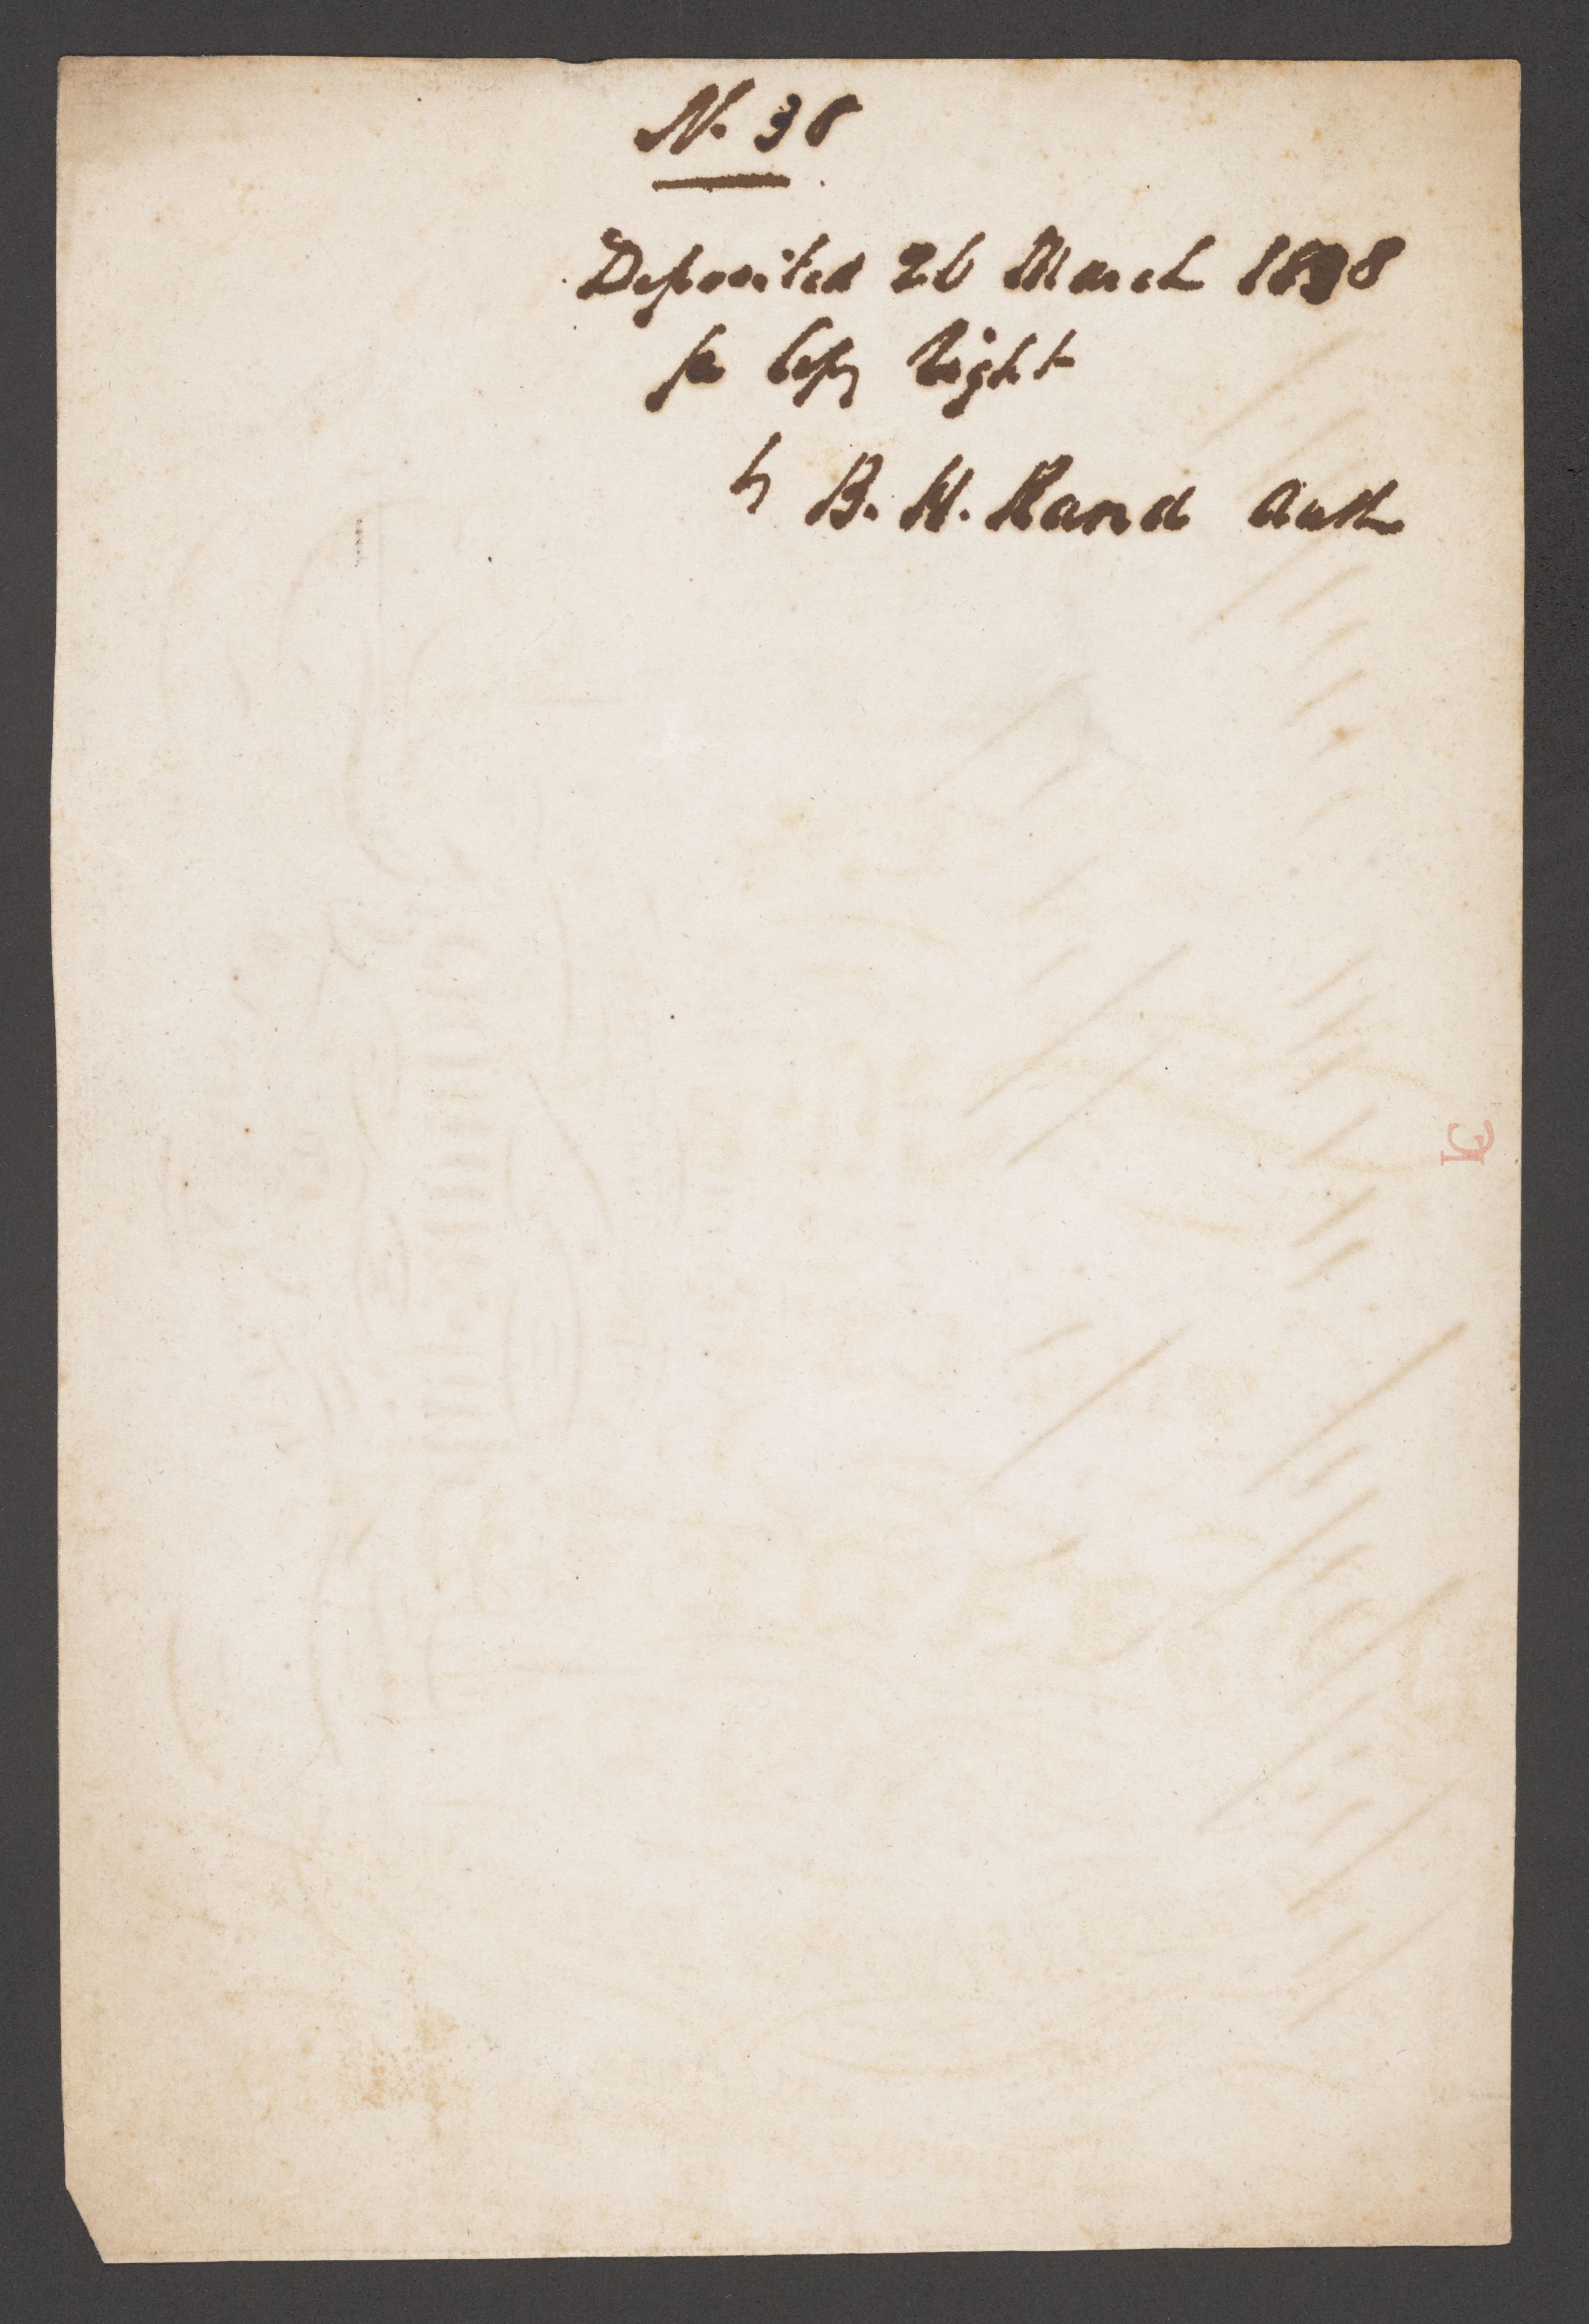 N. 38
Deposited 26 March 1838
for Copy Right
by B. H. Rand Auth